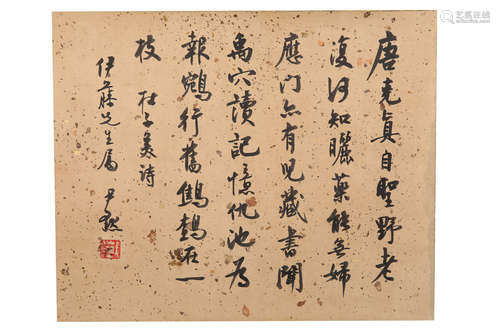 唐堯真自聖野老
復何知曬藥能無婦
應門亦有兒藏書聞
禹穴讀記憶仇池為
報鵷行舊鷦鷯在一
枝 杜子美詩
伊藤先生屬 尹默